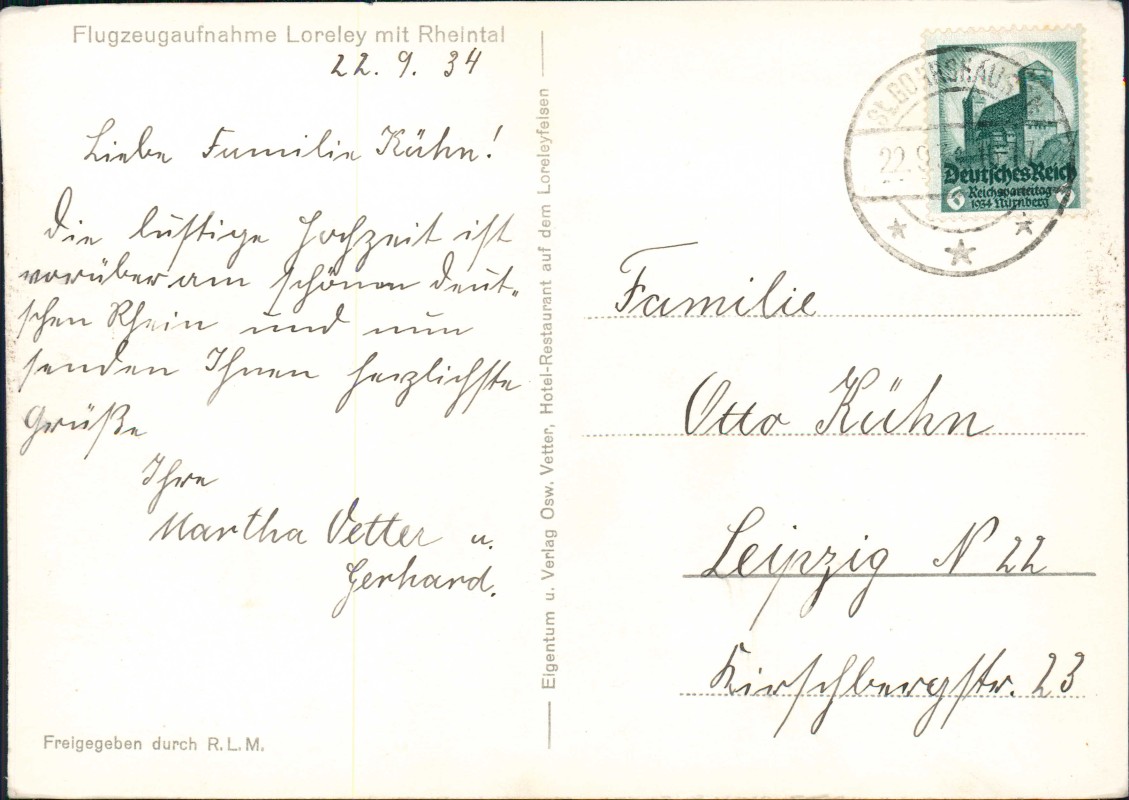 Flugzeugaufnahme Loreley mit Rheintal
22. 9. 34
Liebe Familie Kühn!
Die lustige Hochzeit ist
vorüber am schönen deut-
schen Rhein und nun
senden Ihnen herzlichste
Grüße
Ihre
Martha Vetter u.
Gerhard.
Freigegeben durch R.L.M.
Eigentum u. Verlag Osw. Vetter, Hotel-Restaurant auf dem Loreleyfelsen
St. GOARSHAUSEN
22.9
Deutsches Reich
6 Reichsparteitag
1934 Nürnberg
Familie
Otto Kühn
Leipzig N 22
Kirschbergstr. 23